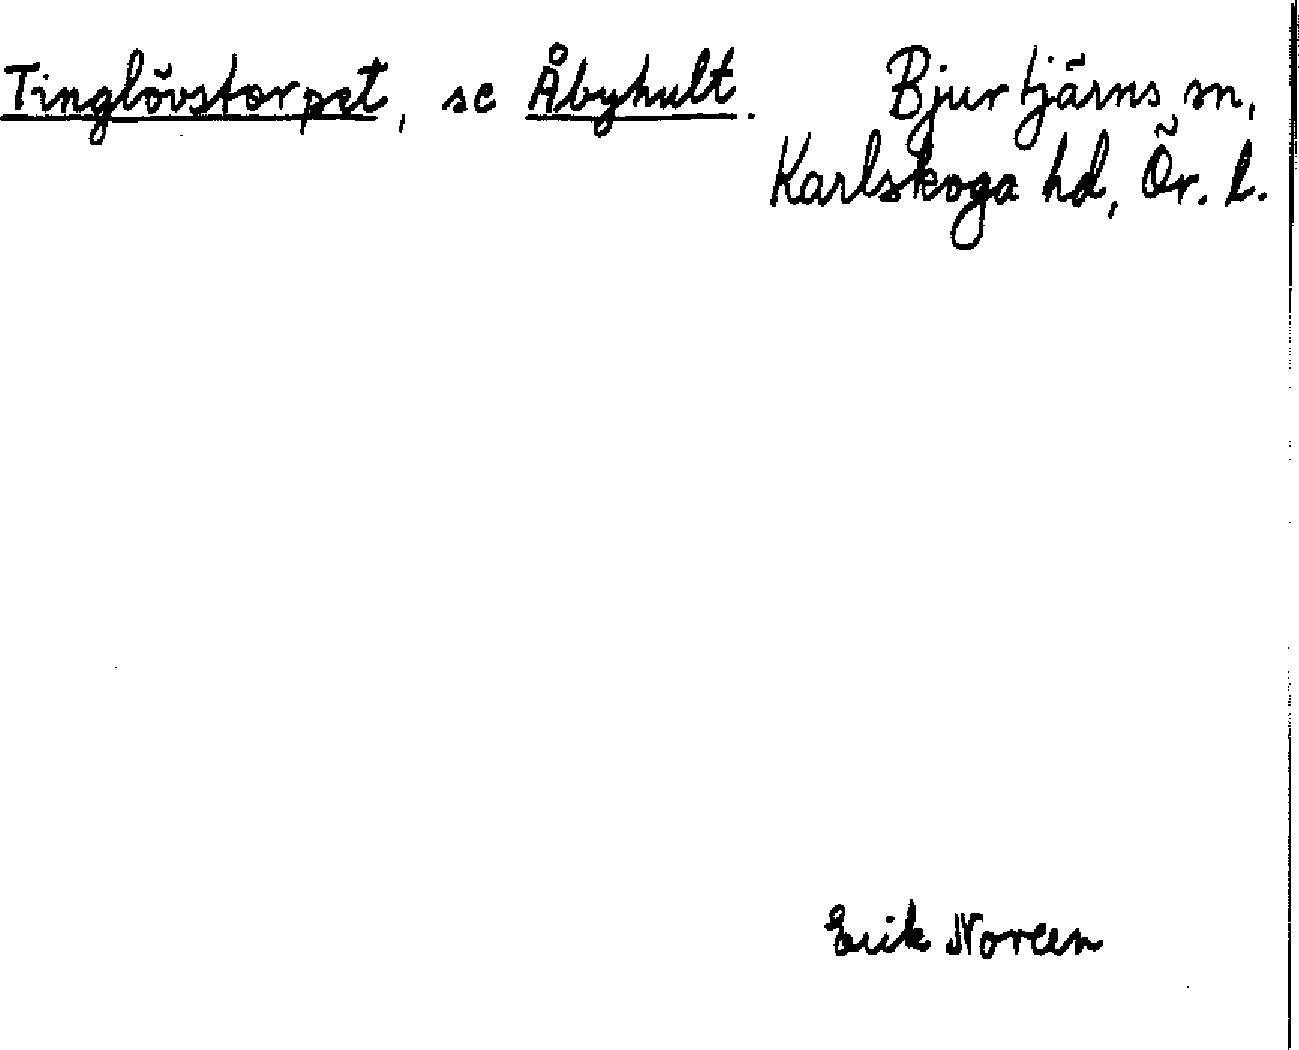 Tinglövstorpet, se Åbyhult. Bjurtjärns sn,
Karlskoga hd, Ör. l.
Erik Noreen